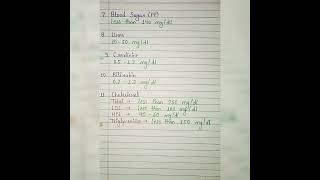 7. Blood Sugar (PP)
less than 140 mg/dl
8. Urea
20-50 mg/dl
9. Creatinine
0.5 - 1.2 mg/dl
10. Bilirubin
0.2 - 1.2 mg/dl
11. Cholesterol
Total → less than 200 mg/dl
LDL → less than 100 mg/dl
HDL → 40 - 60 mg/dl
Triglycerides → less than 150 mg/dl